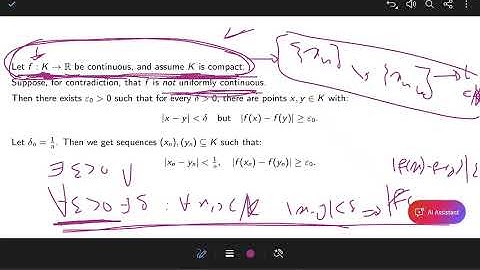 Let f : K → ℝ be continuous, and assume K is compact.
{xₙ}
Suppose, for contradiction, that f is not uniformly continuous.
Then there exists ε₀ > 0 such that for every δ > 0, there are points x, y ∈ K with:
|x − y| < δ but |f(x) − f(y)| ≥ ε₀.
Let δₙ = 1/n. Then we get sequences (xₙ), (yₙ) ⊆ K such that:
|xₙ − yₙ| < 1/n, |f(xₙ) − f(yₙ)| ≥ ε₀.
∃ ε>0 ∀
∀ε>0 ∃δ :
AI Assistant